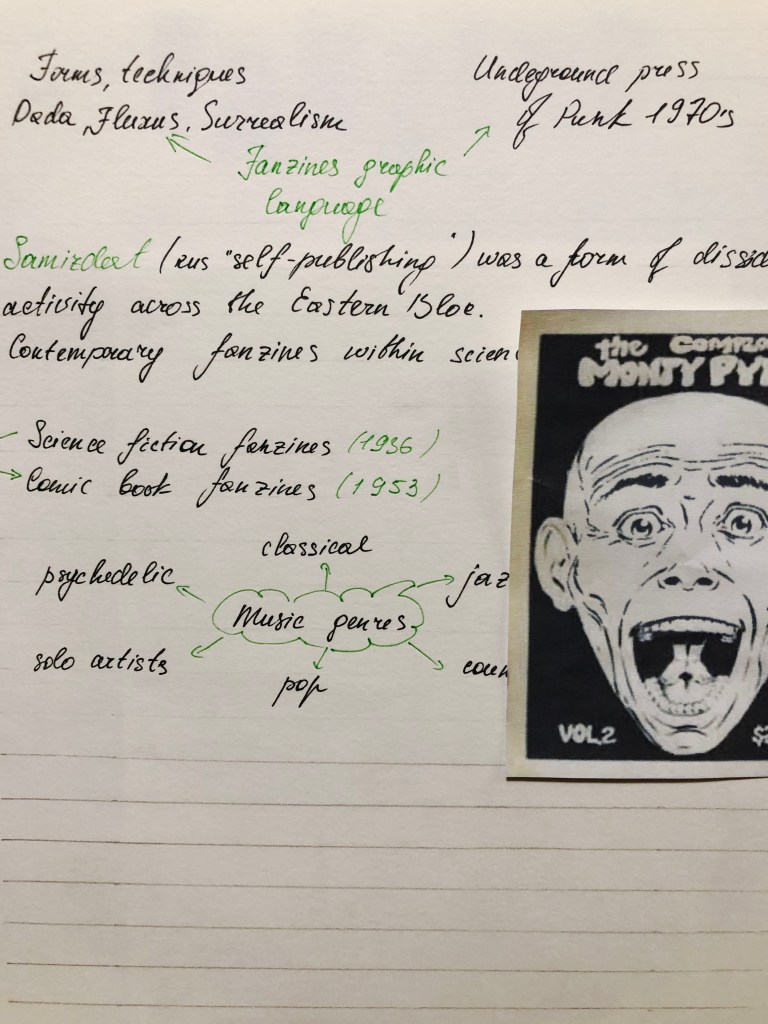 Forms, techniques
Dada, Fluxus, Surrealism
Undeground press
of Punk 1970's
Fanzines graphic
language
Samizdat (rus "self-publishing") was a form of dissid
activity across the Eastern Bloc.
Contemporary fanzines within scien
Science fiction fanzines (1936)
Comic book fanzines (1953)
classical
psychedelic
jaz
Music genres
solo artists
pop
coun
the
MONTY PY
VOL.2